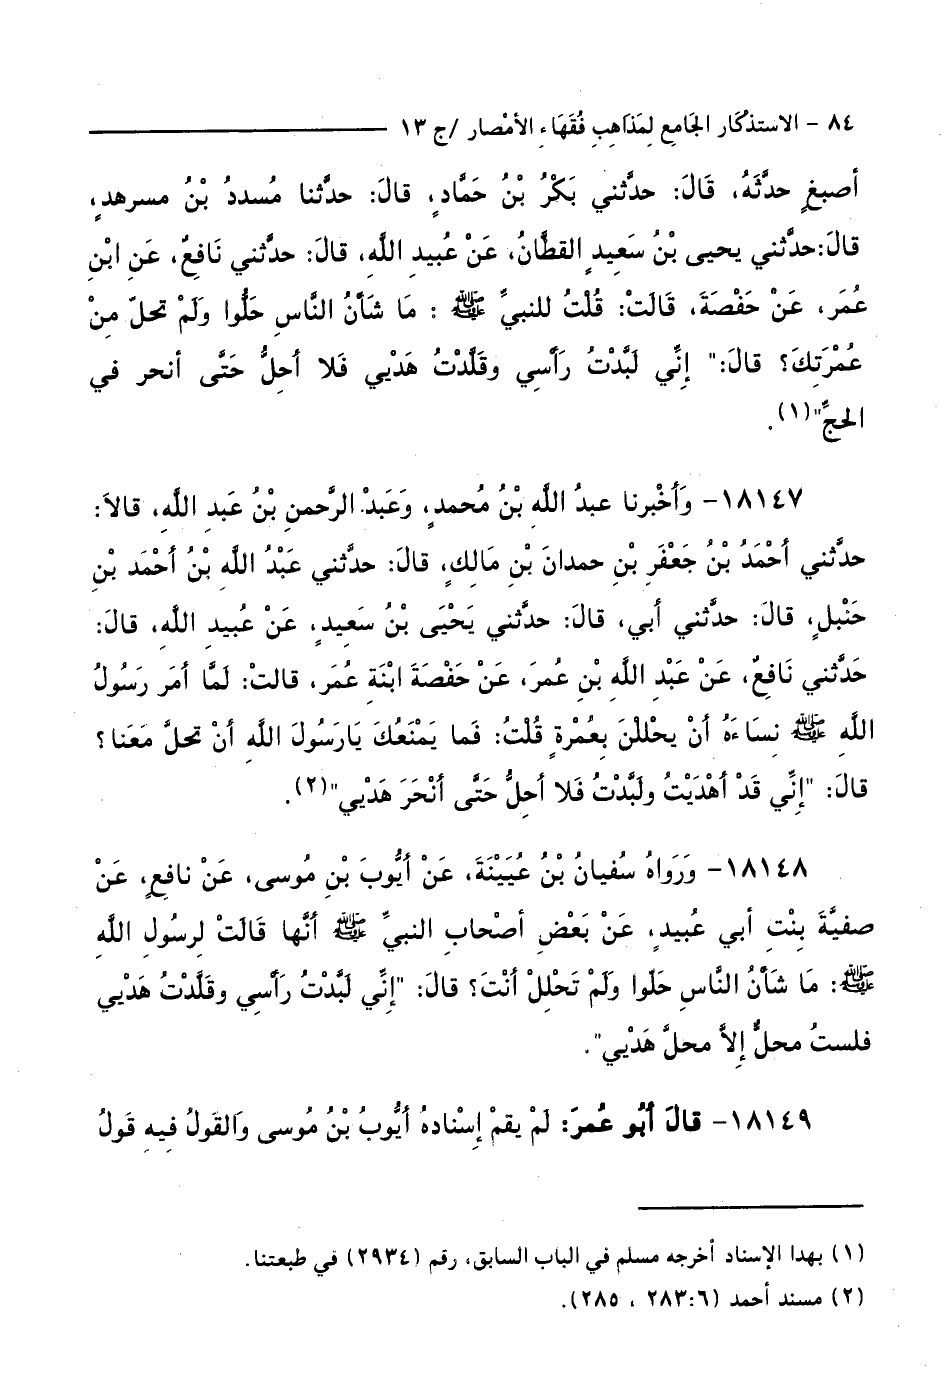 ٨٤ - الاستذكَار الجَامع لمَذَاهبِ فُقَهَاءِ الأمْصار /ج ١٣
أصبغٍ حدَّثَهُ، قَالَ: حدَّثني بَكْرُ بْنُ حَمَّادٍ، قالَ: حدَّثنا مُسددُ بْنُ مسرهدٍ،
قالَ:حدَّثني يحيى بْنُ سَعيدٍ القطَّانُ، عَنْ عُبيدِ اللَّهِ، قالَ: حدَّثني نَافعٌ، عَنِ ابْنِ
عُمَرَ، عَنْ حَفْصَةَ، قَالَتْ: قُلْتُ للنبيِّ ﷺ : مَا شَأنُ النَّاسِ حَلُّوا وَلَمْ تحلّ منْ
عُمْرَتِكَ؟ قالَ:" إنِّي لَبَّدْتُ رَأسِي وقَلَّدْتُ هَدْيي فَلا أحلُّ حَتَّى أنحر في
الحجِّ"(١).
١٨١٤٧- وَأخْبرنا عبدُ اللَّهِ بْنُ مُحمدٍ، وَعَبدْ الرَّحمنِ بْنُ عَبدِ اللَّهِ، قالاَ:
حدَّثني أحْمَدُ بْنُ جَعْفَرِ بْنِ حمدانَ بْنِ مَالِكٍ، قالَ: حدَّثني عَبْدُ اللَّهِ بْنُ أحْمَد بْنِ
حَنْبلٍ، قالَ: حدَّثني أبي، قالَ: حدَّثني يَحْيَى بْنُ سَعيدٍ، عَنْ عُبيدِ اللَّهِ، قالَ:
حَدَّثني نَافعٌ، عَنْ عَبْدِ اللَّهِ بْنِ عُمرَ، عَنْ حَفْصَةَ ابْنَةِ عمَرَ، قالتْ: لَمَّا أمَر رَسُولُ
اللَّهِ ﷺ نسَاءَهُ أنْ يحْللْنَ بعُمْرةٍ قُلْتُ: فَما يَمْنَعُكَ يَارَسُولَ اللَّهِ أنْ تحلَّ مَعَنا؟
قالَ: "إنِّي قَدْ أهْدَيْتُ ولَبَّدْتُ فَلا أحلُّ حَتَّى أنْحَرَ هَدْيي"(٢).
١٨١٤٨- وَرَوَاهُ سُفيانُ بْنُ عُيَيْنَةَ، عَنْ أيُّوبَ بْنِ مُوسى، عَنْ نافعٍ، عَنْ
صفيَّةَ بنْتِ أبي عُبيدٍ، عَنْ بَعْضِ أصْحابِ النبيِّ ﷺ أنَّها قَالَتْ لِرسُولِ اللَّهِ
ﷺ: مَا شَأنُ النَّاسِ حَلّوا وَلَمْ تَحْللْ أنْتَ؟ قالَ: "إنِّي لَبَّدْتُ رَأسِي وقَلَّدْتُ هَدْيي
فلستُ محلٌّ إلاَّ محلَّ هَدْيي".
١٨١٤٩- قالَ أبُو عُمرَ: لَمْ يقمْ إسْنادهُ أيُّوبُ بْنُ مُوسى وَالقَولُ فيهِ قَولُ
(١) بهدا الإسناد أخرجه مسلم في الباب السابق، رقم (٢٩٣٤) في طبعتنا.
(٢) مسند أحمد (٢٨٣:٦ ، ٢٨٥).